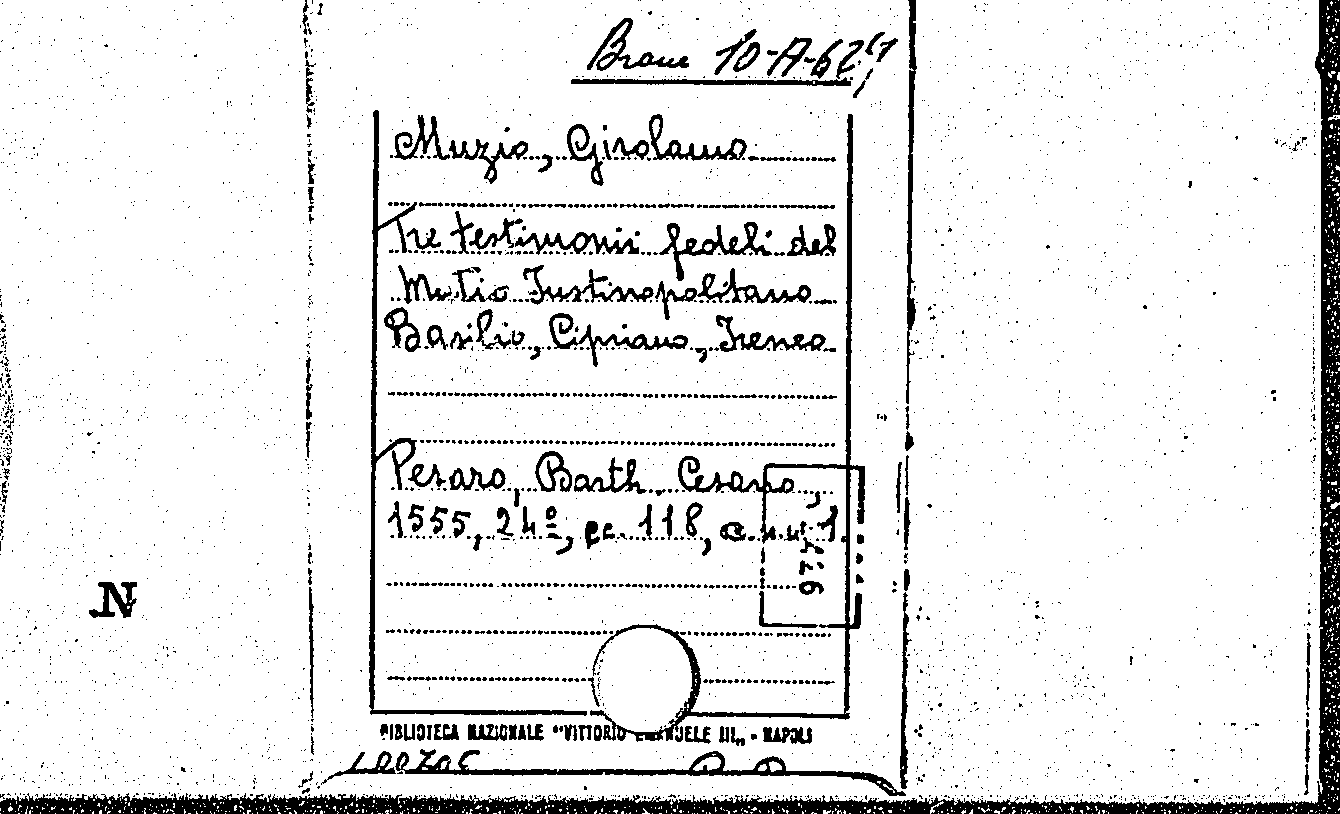 Branc 10-A-62
Muzio, Girolamo
Tre testimonii fedeli del
Mutio Justinopolitano
Basilio, Cipriano, Ireneo
Pesaro, Barth. Cesano,
1555, 24º, cc. 118, c.n.n. 1.
N
BIBLIOTECA NAZIONALE "VITTORIO EMANUELE III„ - NAPOLI